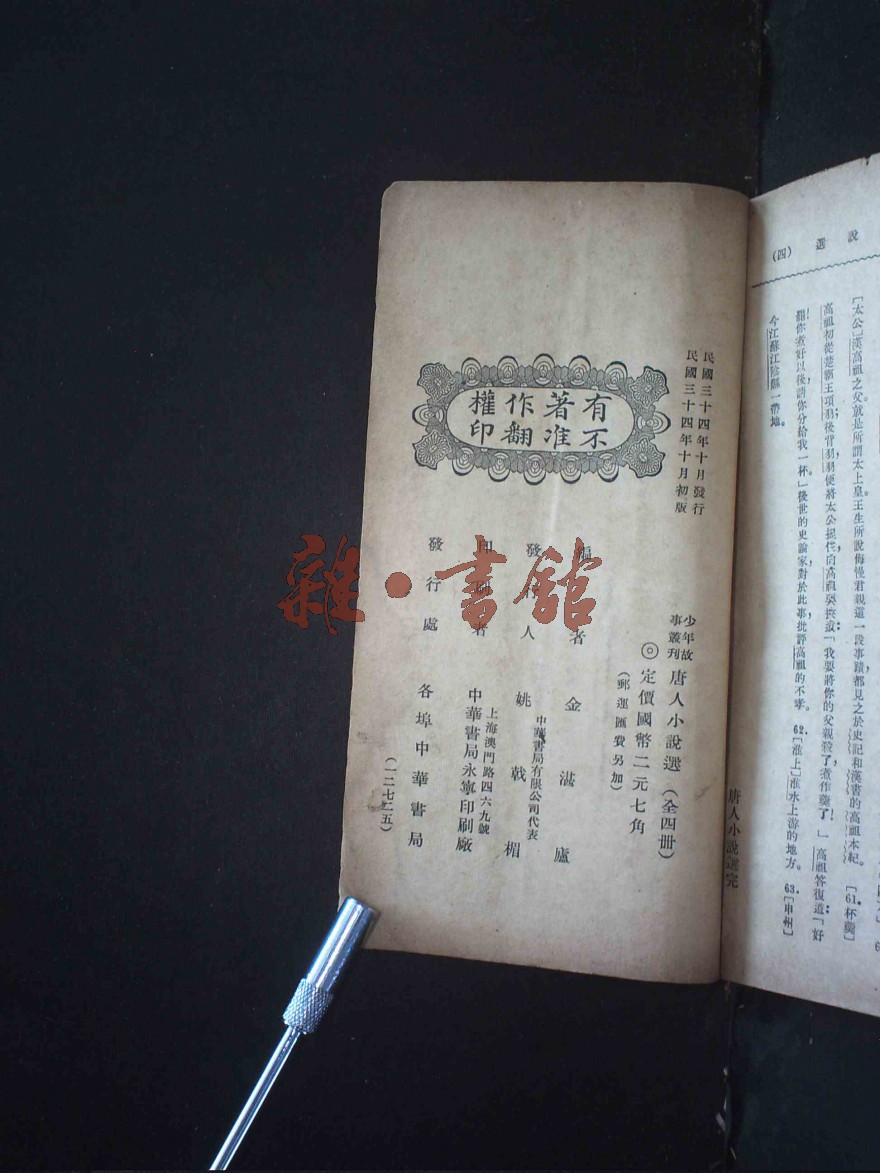 說選(四)
[太公]漢高祖之父就是所謂太上皇王生所說侮慢君親這一段事蹟都見之於史記和漢書的高祖本紀。 [61.杯羹]
高祖初從楚霸王項羽;後背羽,羽便將太公捉住向高祖要挾說:「我要將你的父親殺了煮作羹了!」高祖答復道:「好
罷!你煮好以後,請你分給我一杯。」後世的史論家對於此事,批評高祖的不孝。 62.[淮上]淮水上游的地方。 63.[申州]
今江蘇江陰縣一帶地。
唐人小說選完
民國三十四年十月發行
民國三十四年十月初版
有著作權
不准翻印
少年故事叢刊 唐人小說選(全四冊)
◎定價國幣二元七角
(郵運匯費另加)
編者 金湛廬
發行人 姚戟楣
中華書局有限公司代表
印刷者 上海澳門路四六九號
中華書局永寧印刷廠
發行處 各埠中華書局
(一二七二五)
雜·書館